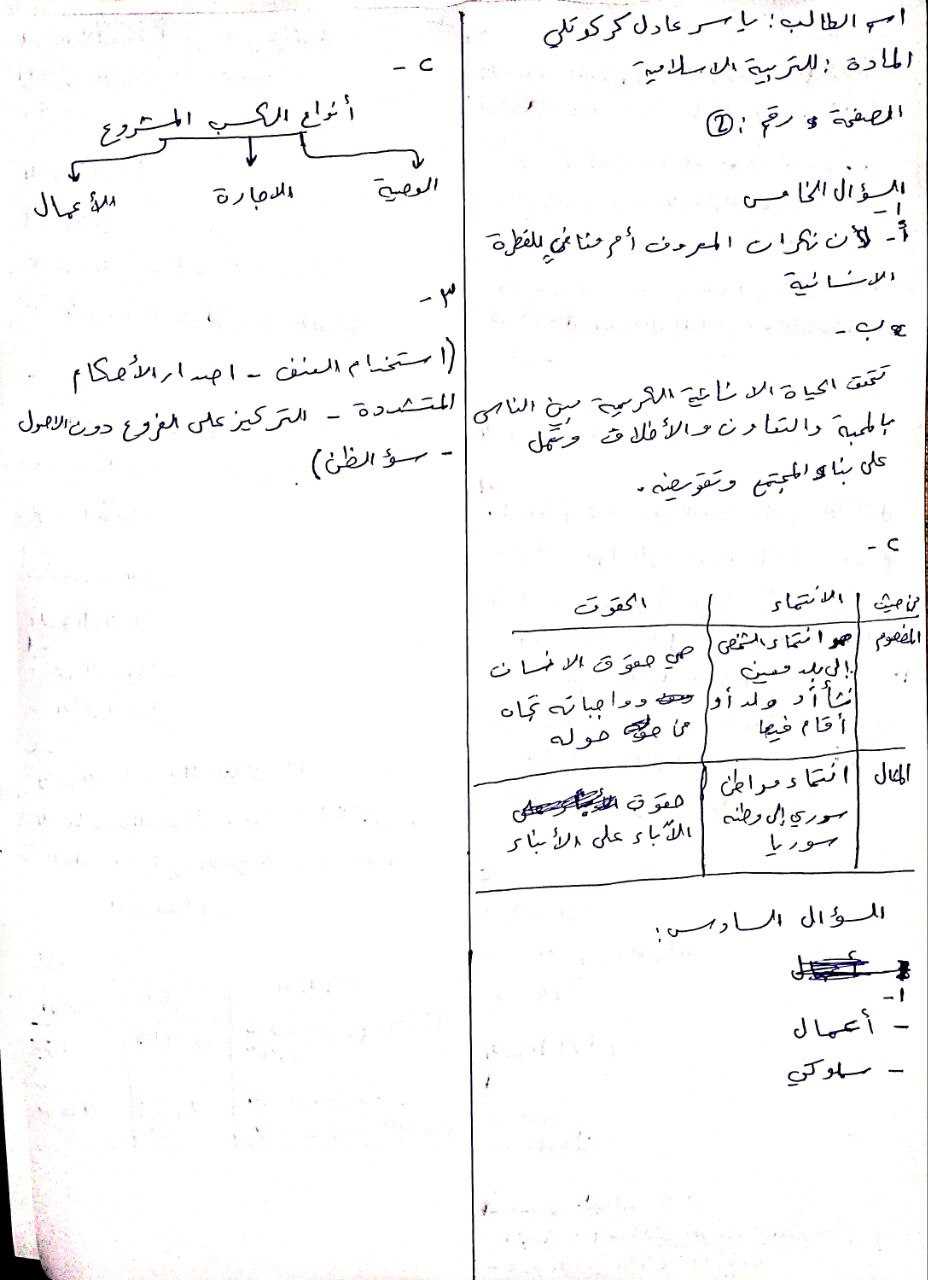 اسم الطالب: ياسر عادل كركوتلي
المادة: للتربية الاسلامية
الصفحة رقم: 2
السؤال الخامس
1-
أ- لأن نكران المعروف أمر منافيٍ للفطرة
الانسانية
ب-
تتحقق الحياة الانسانية الكريمة بين الناس
بالمحبة والتعاون والأخلاق وتعمل
على بناء المجتمع وتقويضه.
2-
من حيث | الانتماء | الحقوق
المفهوم | هو انتماء الشخص | هي حقوق الانسان
إلى بلد معين | وواجباته تجاه
نشأ أو ولد أو | من حوله
أقام فيها
المثال | انتماء مواطن | حقوق
سوري إلى وطنه | الآباء على الأبناء
سوريا
السؤال السادس:
1-
- أعمال
- سلوكي
2-
أنواع الكسب المشروع
الوصية الاجارة الأعمال
3-
(استخدام العنف - اصدار الأحكام
المتشددة - التركيز على الفروع دون الاصول
- سؤ الظن).